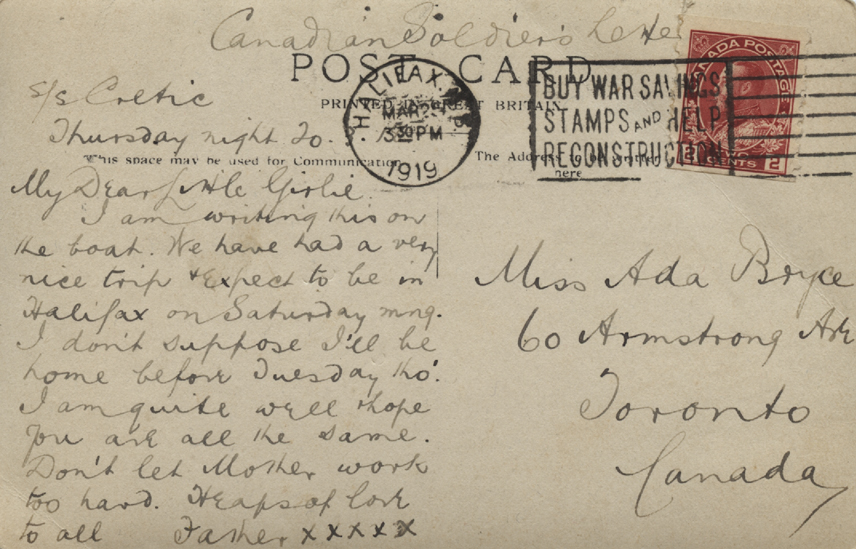 Canadian Soldier's Letter
POST CARD
PRINTED IN GREAT BRITAIN
HALIFAX. N.S.
MAR 23
3 30 PM
1919
BUY WAR SAVINGS
STAMPS AND HELP
RECONSTRUCTION
CANADA POSTAGE
2 CENTS 2
This space may be used for Communication
The Address
here
S/S Celtic
Thursday night 20.
My Dear Little Girlie.
I am writing this on
the boat. We have had a very
nice trip & Expect to be in
Halifax on Saturday mng.
I don't suppose I'll be
home before Tuesday tho'.
I am quite well & hope
you are all the same.
Don't let Mother work
too hard. Heaps of love
to all Father x x x x x
Miss Ada Bryce
60 Armstrong Ave
Toronto
Canada